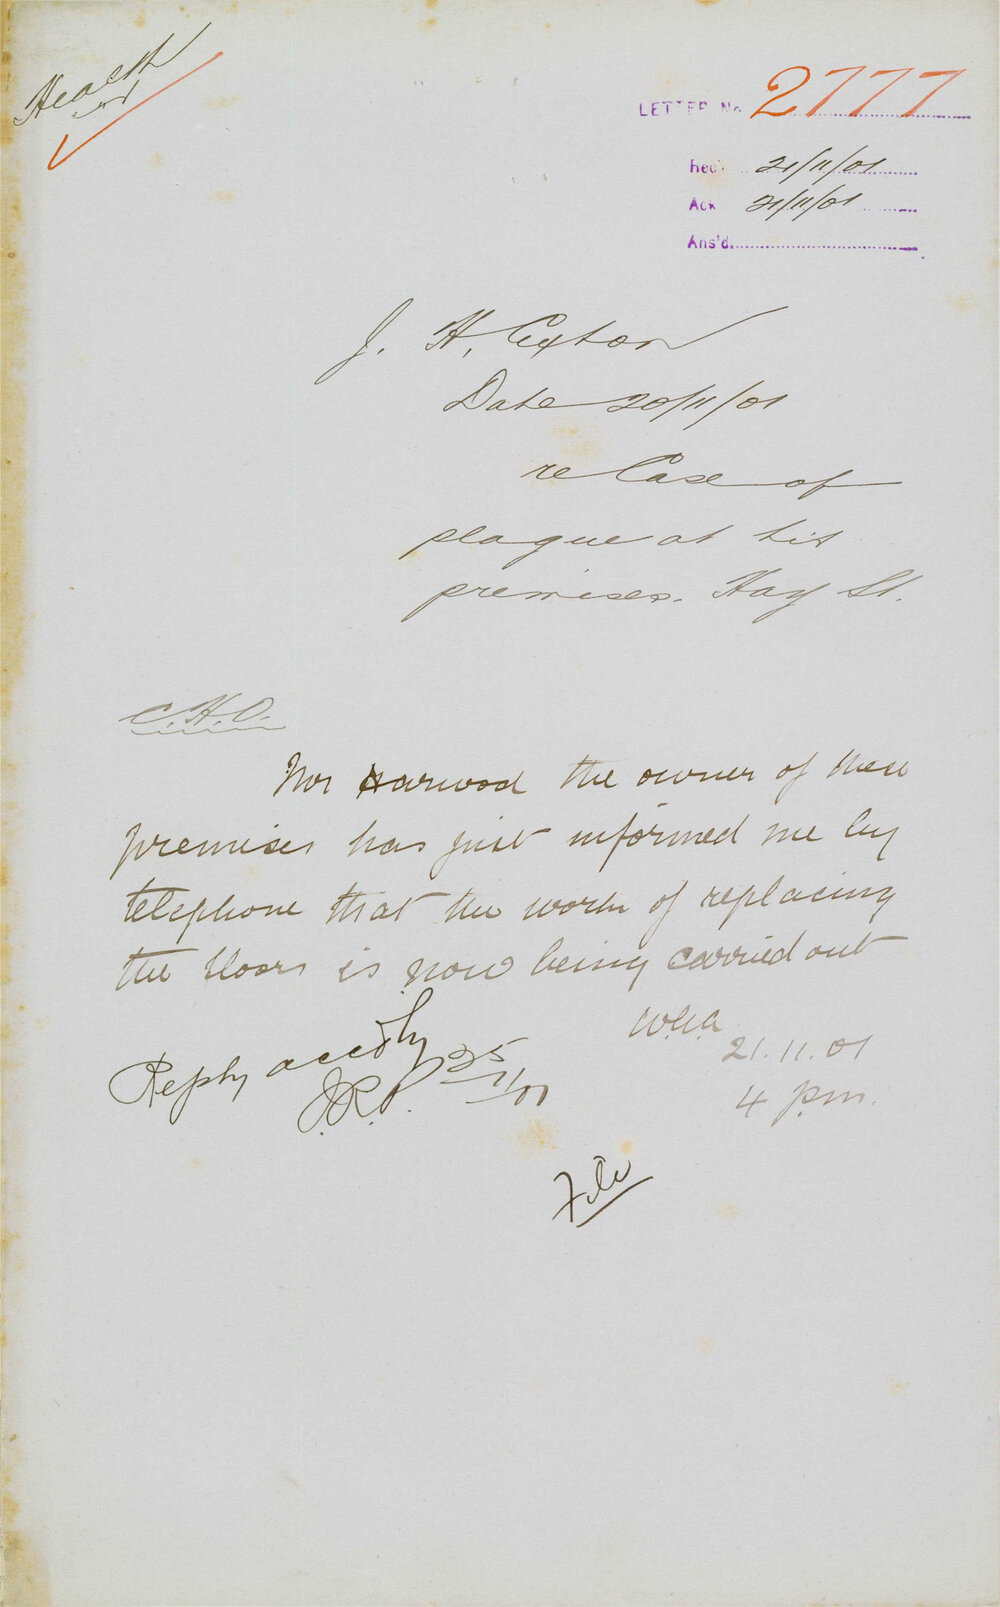 Health
LETTER No 2777
Rec'd 21/11/01
Ack 21/11/01
Ans'd
J. H. Eyton
Date 20/11/01
re Case of
plague at his
premises. Hay St.
C.H.O.
Mr Harwood the owner of these
premises has just informed me by
telephone that the work of replacing
the floors is now being carried out
21.11.01
4 pm.
Reply accdly
25/11/01
File